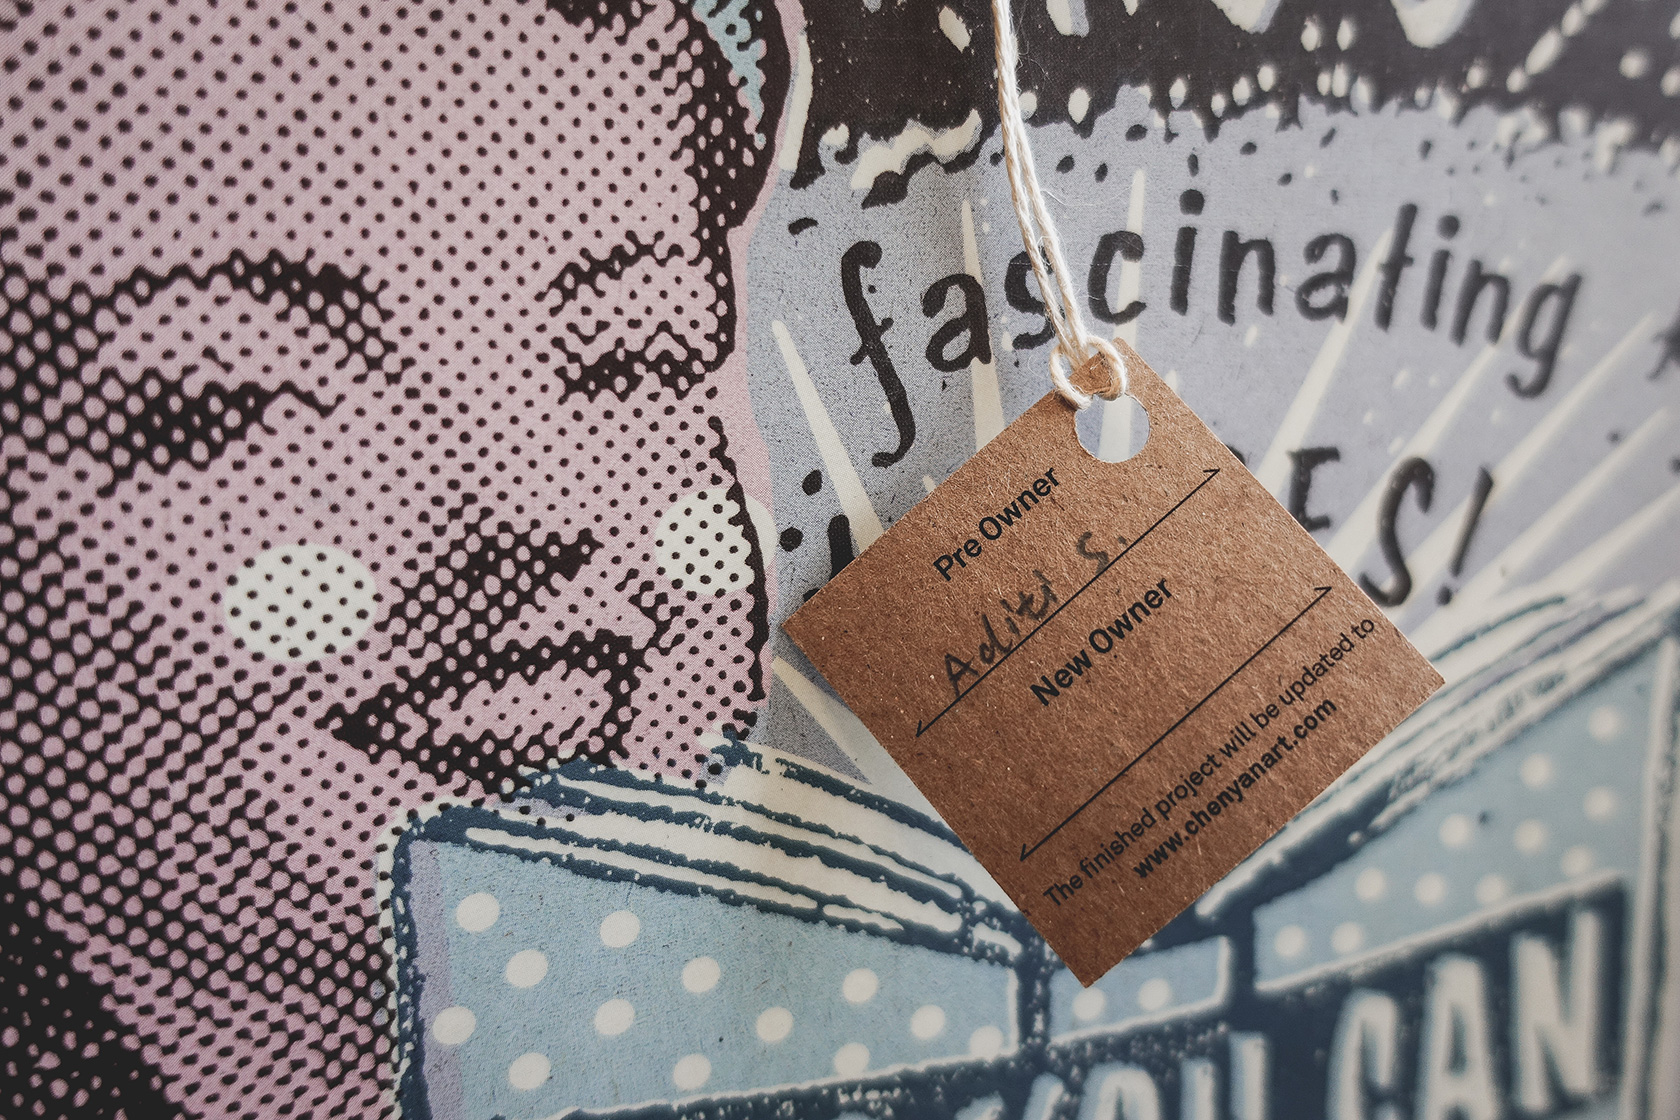 fascinating
Pre Owner
Aditi S.
New Owner
The finished project will be updated to
www.chenyanart.com
YOU CAN